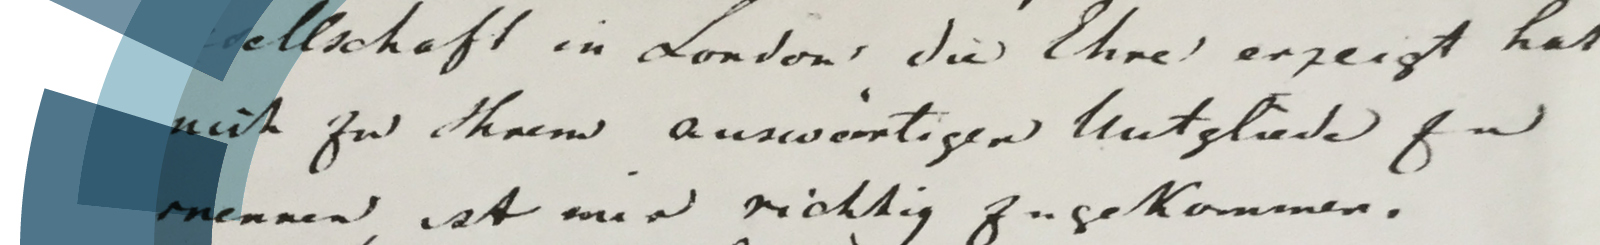 sellschaft in London, die Ehre erzeigt hat
mich zu Ihrem auswärtigen Mitgliede zu
ernennen, ist mir richtig zugekommen.